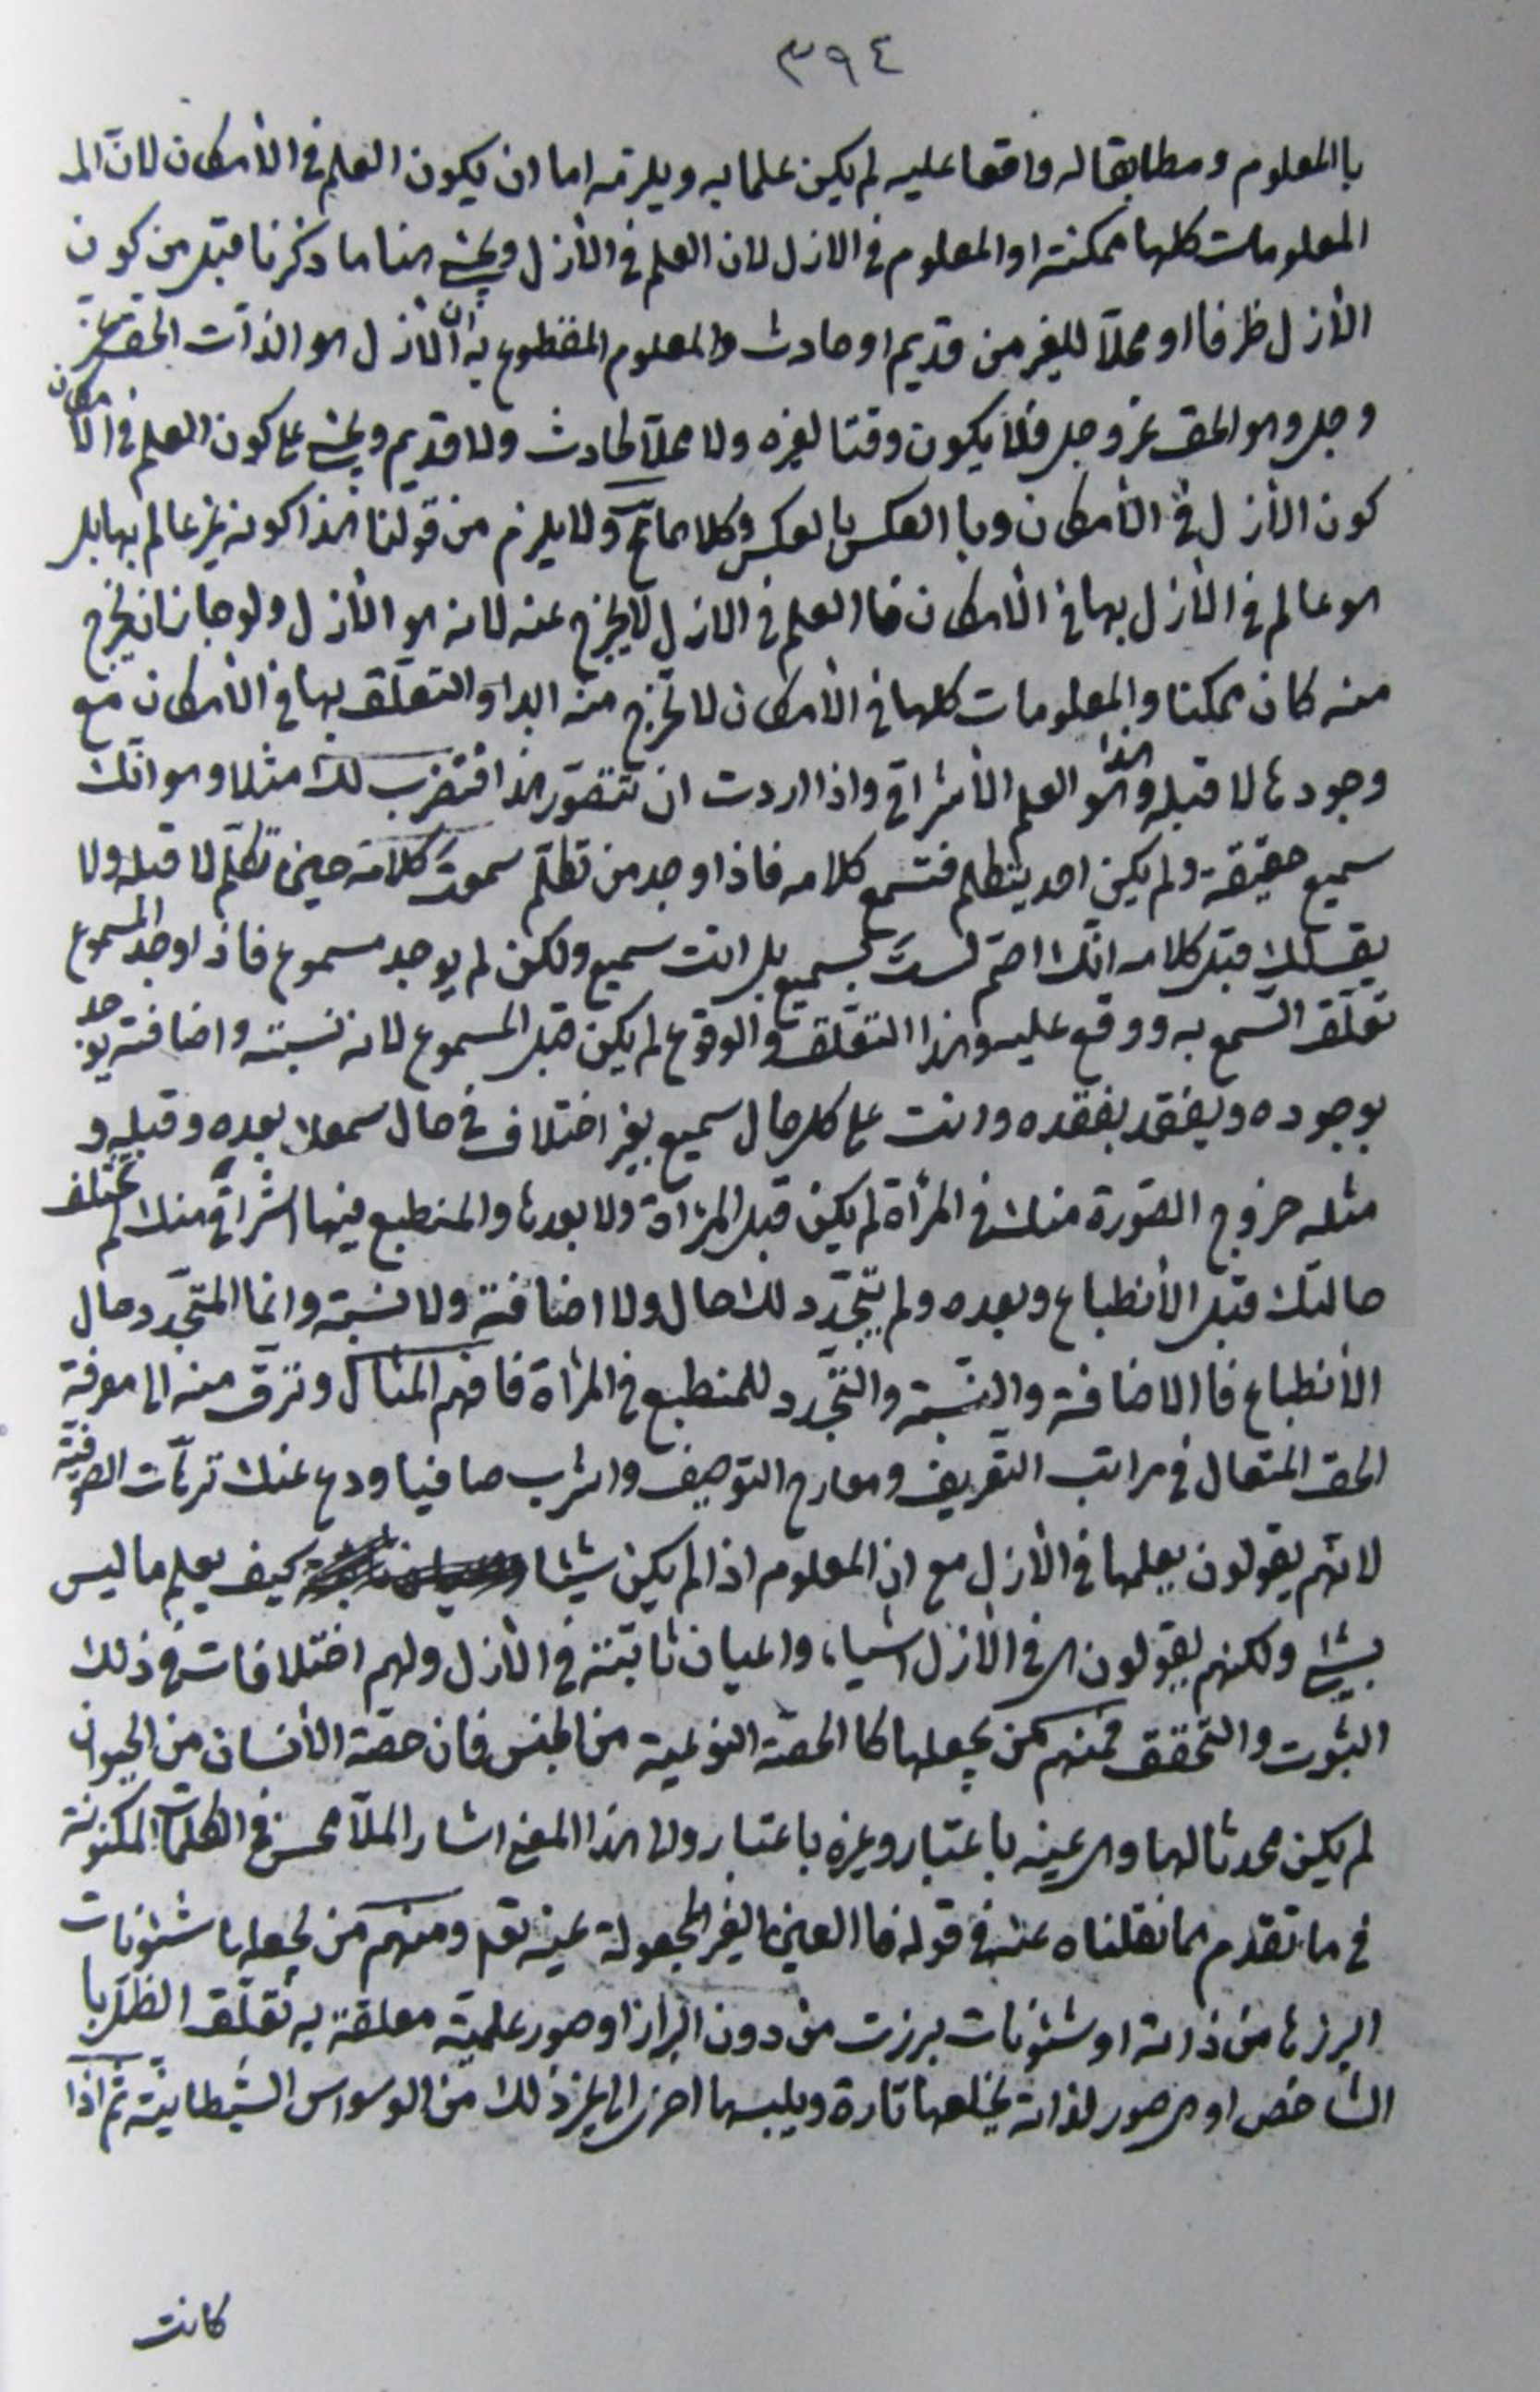 ٣٩٤
با المعلوم ومطابقا له واقعا عليه لم يكن علما به ويلزمه اما ان يكون العلم في الأمكان لانّ الم
المعلومات كلها ممكنة او المعلوم في الازل لان العلم في الأزل ويجئ هنا ما ذكرنا قبل من كون
الأزل ظرفا او محلّا للغير من قديم او حادث والمعلوم المقطوع به أنّ الأزل هو الذّات الحق عزّ
وجل وهو الحق عزوجل فلا يكون وقتا لغيره ولا محلّا لحادث ولا قديم ويجئ على كون العلم في الأمكان
كون الأزل في الأمكان وبا العكس بالعكس وكلاهما تح ولا يلزم من قولنا هذا كونه غير عالم بها بل
هو عالم في الأزل بها في الأمكان فا العلم في الازل لا يخرج عنه لانه هو الأزل ولو جاز ان يخرج
منه كان ممكنا والمعلومات كلها في الأمكان لا تخرج منه ابدا والتعلّق بها في الأمكان مع
وجودها لا قبله وهذا هو العلم الأشراقي واذا اردت ان تتصوّر هذا فنضرب لك مثلا وهو انّك
سميع حقيقة ولم يكن احد يتكلم فتسمع كلامه فاذا وجد من تكلّم سمعتَ كلامه حين تكلّم لا قبله ولا
يقال لك قبل كلامه انّك اصمّ لستَ بسميع بل انت سميع ولكن لم يوجد مسموع فاذا وجد المسموع
تعلّق السّمع به ووقع عليه وهذا التعلّق والوقوع لم يكن قبل المسموع لانه نسبة واضافة يوجد
بوجوده ويفقد بفقده وانت على كل حال سميع بغير اختلاف في حال سمعك بعده وقبله و
مثله خروج الصّورة منك في المرأة لم يكن قبل المرأة ولا بعدها والمنطبع فيها اشراقيّ منك لم تختلف
حالتك قبل الأنطباع وبعده ولم يتجدّد لك حال ولا اضافة ولا نسبة وانما المتجدّد حال
الأنطباع فا الاضافة والنسبة والتجدّد للمنطبع في المرأة فافهم المثال وترقّ منه الى معرفة
الحق المتعال في مراتب التّعريف ومعارج التوصيف واشرب صافيا ودع عنك ترّهات الصوفيّة
لانهم يقولون يعلمها في الأزل مع ان المعلوم اذا لم يكن شيئا كيف يعلم ما ليس
بشئ ولكنهم يقولون هي في الأزل اشياء واعيان ثابتة في الأزل ولهم اختلافات في ذلك
الثبوت والتّحقق فمنهم من يجعلها كا الحصّة النوعية من الجنس فان حصّة الأنسان من الحيوان
لم يكن محدثا لها وهي عينه باعتبار وغيره باعتبار والى هذا المعنى اشار الملّا محسن في الكلمات المكنونة
في ما تقدم مما نقلناه عنه في قوله فا العين الغير المجعولة عينه تع ومنهم من يجعلها شئونات
ابرزها من ذاته او شئونات برزت من دون ابراز او صور علمية معلقة به تعلّق الظلّ با
الشاخص او هي صور لذاته يخلعها تارة ويلبسها اخرى الى غير ذلك من الوسواس الشيطانيّة ثم اذا
كانت